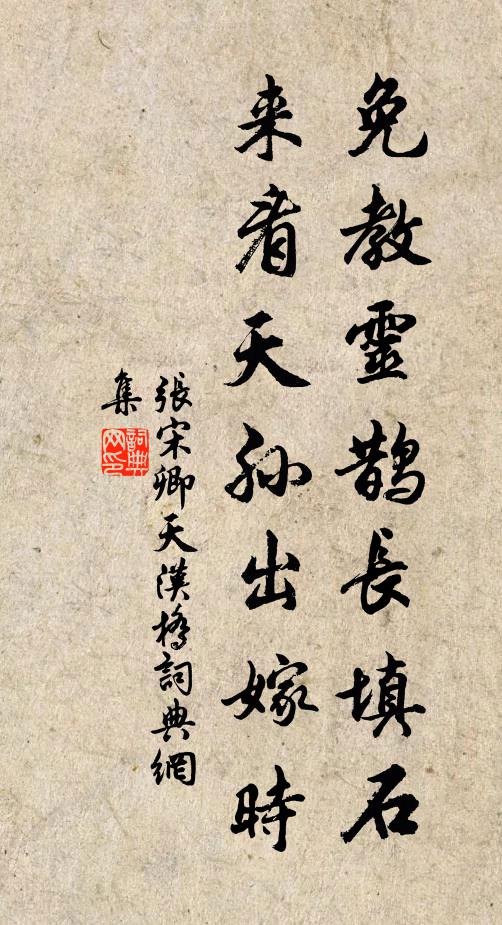 免教靈鹊長填石
来看天孙出嫁時
張宋卿天漢橋詞典網
集
詞典
网印